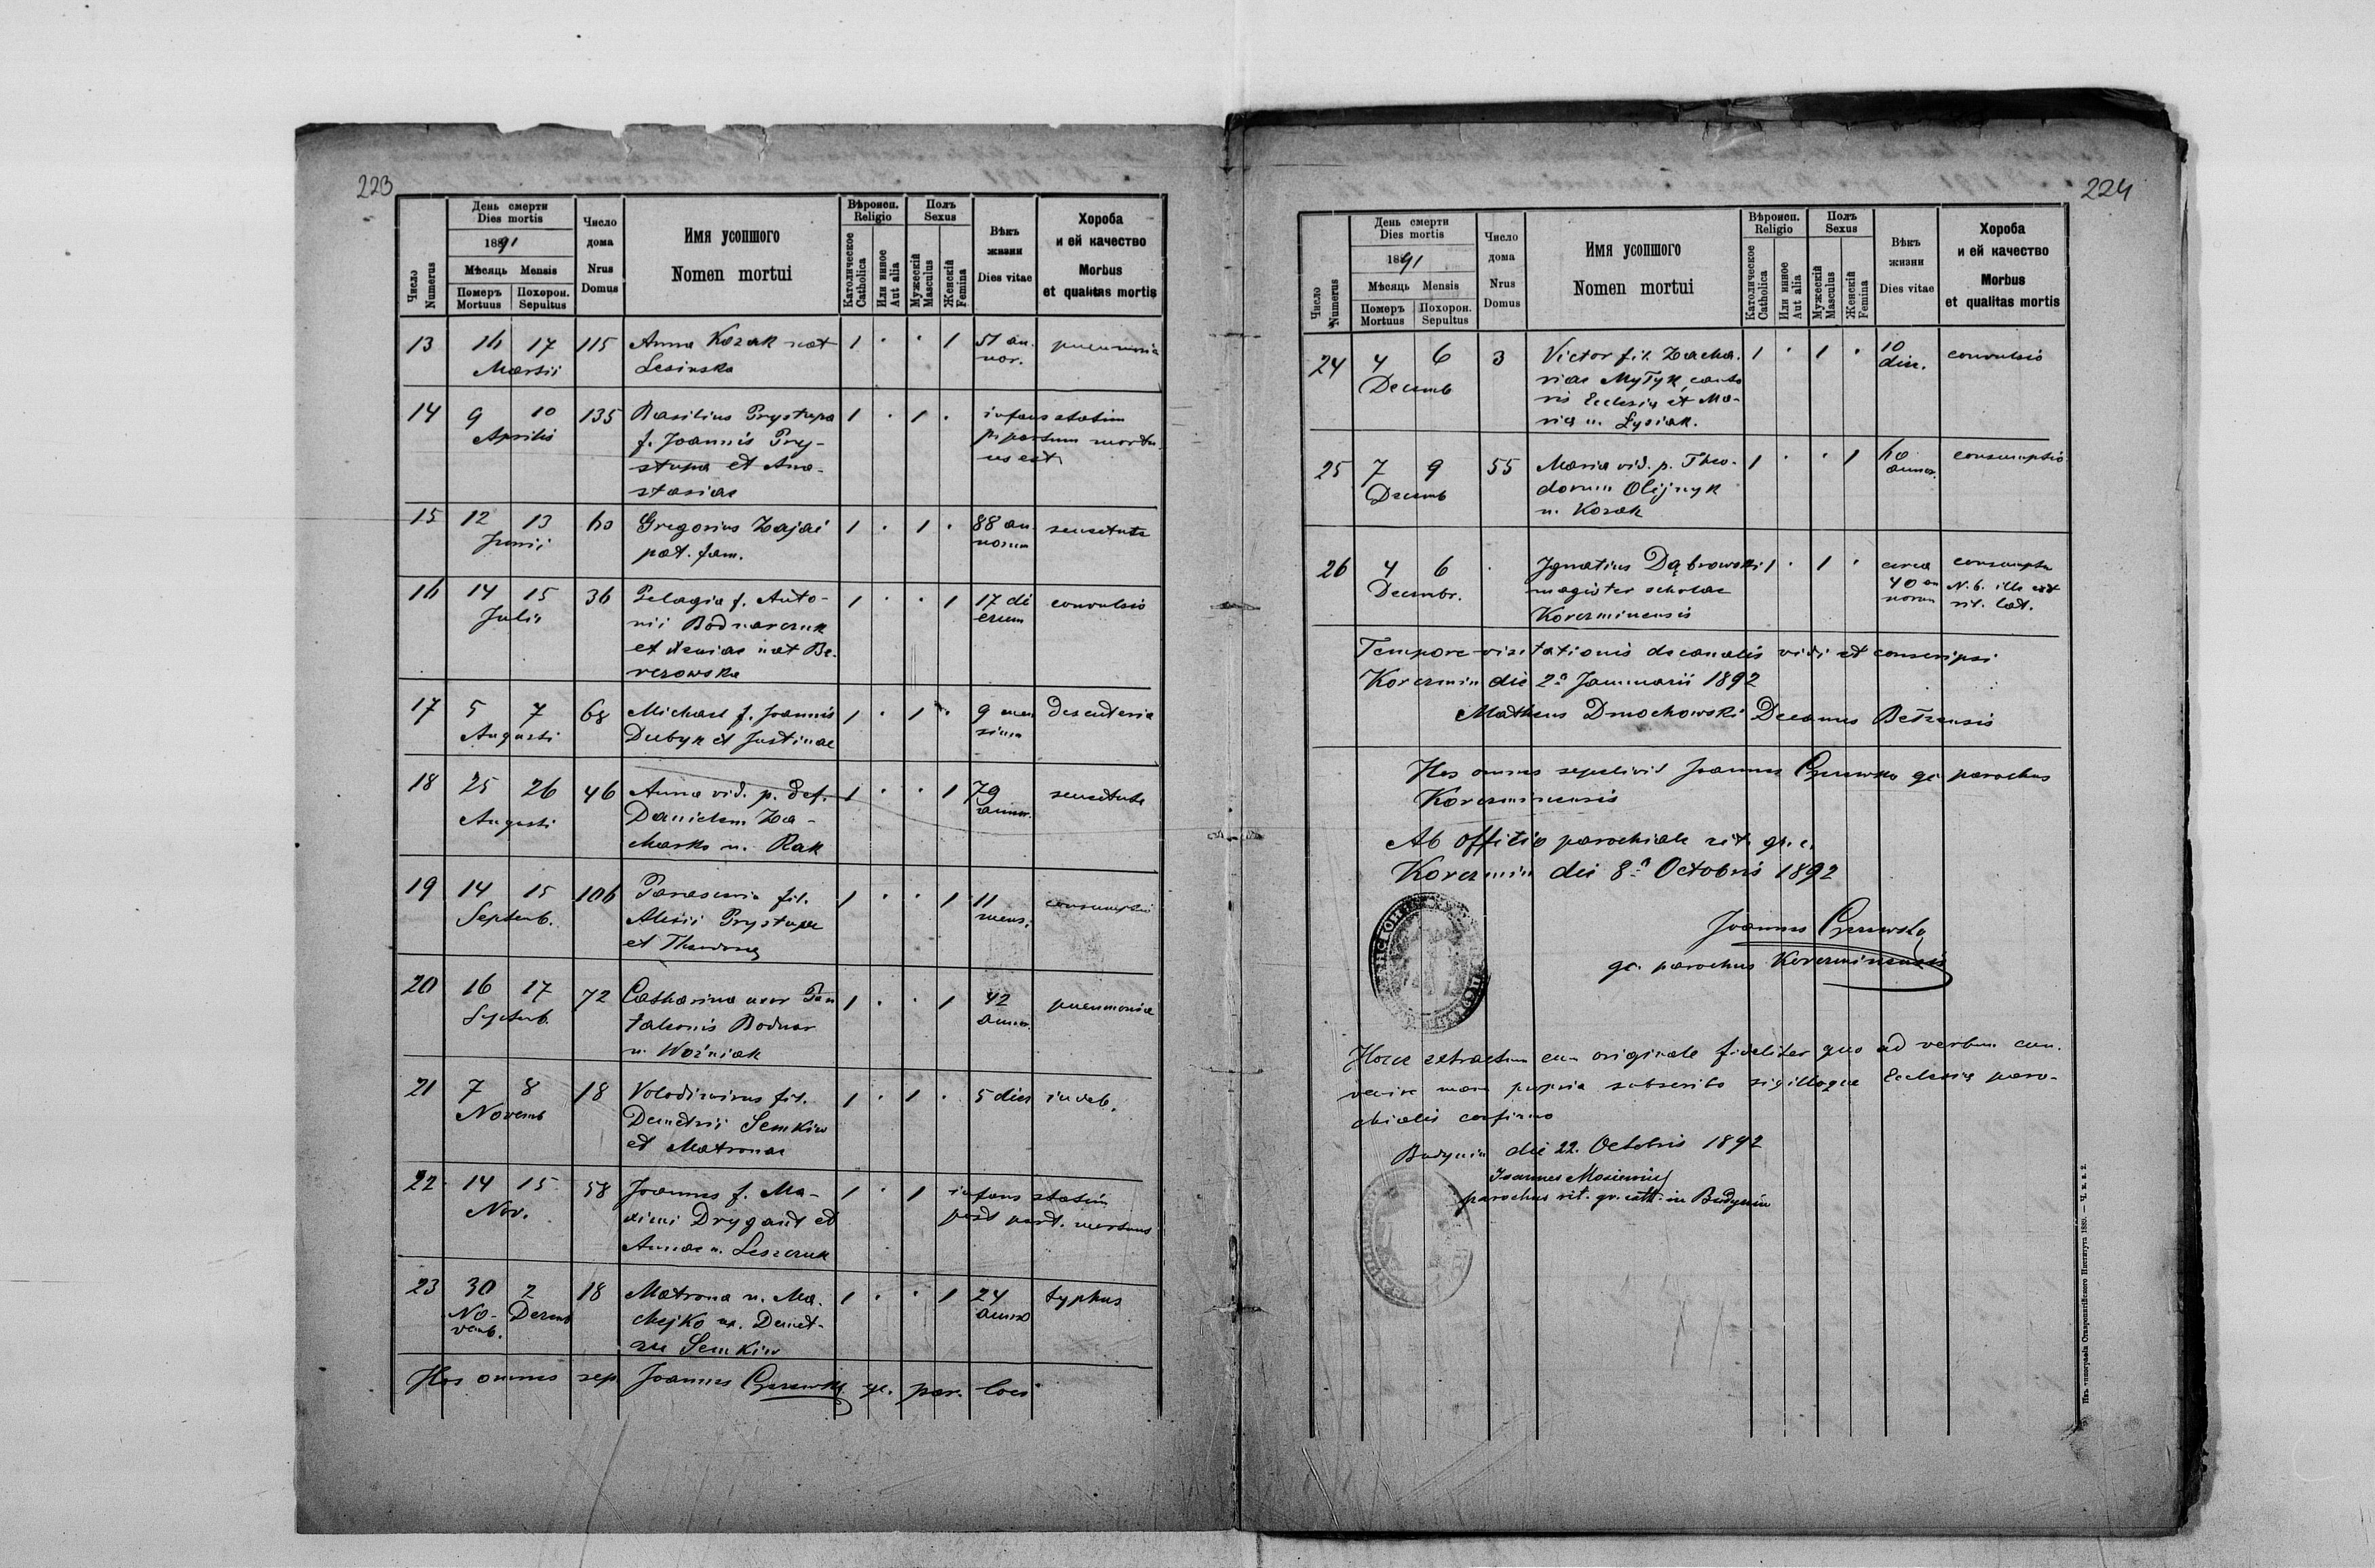 223
День смерти
Dies mortis
1891
Мѣсяць Mensis
Померъ Mortuus
Похорон. Sepultus
Число Numerus
Число дома
Nrus Domus
Имя усопшого
Nomen mortui
Вѣроисп.
Religio
Католическое Catholica
Или инное Aut alia
Полъ
Sexus
Мужескій Masculus
Женскій Femina
Вѣкъ жизни
Dies vitae
Хороба
и ей качество
Morbus
et qualitas mortis
13 16 17 115 Anna Kozak nat 1 · · 1 57 an- pneumonia
Martii Lesinska nor.
14 9 10 135 Basilius Prystupa 1 · 1 · infans statim
Aprilis f. Joannis Pry- p. partum mortu-
stupa et Ana- us est
stasiae
15 12 13 60 Gregorius Zajać 1 · 1 · 88 an- senectute
Junii pat. fam. norum
16 14 15 36 Pelagia f. Anto- 1 · · 1 17 di convulsio
Julii nii Bodnarczuk erum
et Xeniae nat Be-
rezowska
17 5 7 68 Michael f. Joannis 1 · 1 · 9 men desenteria
Augusti Dubyk et Justinae sium
18 25 26 46 Anna vid. p. def. 1 · · 1 79 senectute
Augusti Danielem Za- annor.
charko n. Rak
19 14 15 106 Parascevia fil. 1 · · 1 11 consumptio
Septemb. Alexii Prystupa mens.
et
20 16 17 72 Catharina uxor Pan 1 · · 1 42 pneumonia
Septemb. taleonis Bodnar annor.
n. Woźniak
21 7 8 18 Volodimirus fil. 1 · 1 · 5 dies inveb.
Novemb Demetrii Semkiw
et Matronae
22 14 15 58 Joannes f. Ma- 1 · 1 infans statim
Nov. ximi Drygant et post part. mortuus
Annae n. Leszczuk
23 30 2 18 Matrona n. Ma- 1 · · 1 24 typhus
No- Decemb chejko ux. Demet-
vemb. rii Semkiw
Hos omnes sep. Joannes gc. par. loci
224
День смерти
Dies mortis
1891
Мѣсяць Mensis
Померъ Mortuus
Похорон. Sepultus
Число Numerus
Число дома
Nrus Domus
Имя усопшого
Nomen mortui
Вѣроисп.
Religio
Католическое Catholica
Или инное Aut alia
Полъ
Sexus
Мужескій Masculus
Женскій Femina
Вѣкъ жизни
Dies vitae
Хороба
и ей качество
Morbus
et qualitas mortis
24 4 6 3 Victor fil. Zacha- 1 · 1 · 10 convulsio
Decemb riae Mytyk, canto die.
ris Ecclesiae et Ma-
riae n. Łysiak.
25 7 9 55 Maria vid. p. Theo- 1 · · 1 60 consumptio
Decemb dorum Olijnyk annor.
n. Kozak
26 4 6 · Ignatius Dąbrowski 1 · 1 · circa consumptio
Decembr. magister scholae 40 an N.b. ille est
Korczminensis norum rit. lat.
Tempore visitationis decanalis vidi et conscripsi
Korczmin die 2a Januarii 1892
Matheus Dmochowski Decanus Bełzensis
Hos omnes sepelivit Joannes gc. parochus
Korczminensis
Ab offitio parochiale rit. gr. c.
Korczmin die 8a Octobris 1892
Joannes
gc. parochus Korczminensis
Hocce extractum cum originale fideliter quo ad verbum con-
venire manu propria subscribo sigilloque Ecclesiae paro-
chialis confirmo
Budynin die 22. Octobris 1892
Joannes
parochus rit. gr. cath. in Budynin
Изъ типографіи Ставропигійского Института 1889. — Ч. к. в. 2.